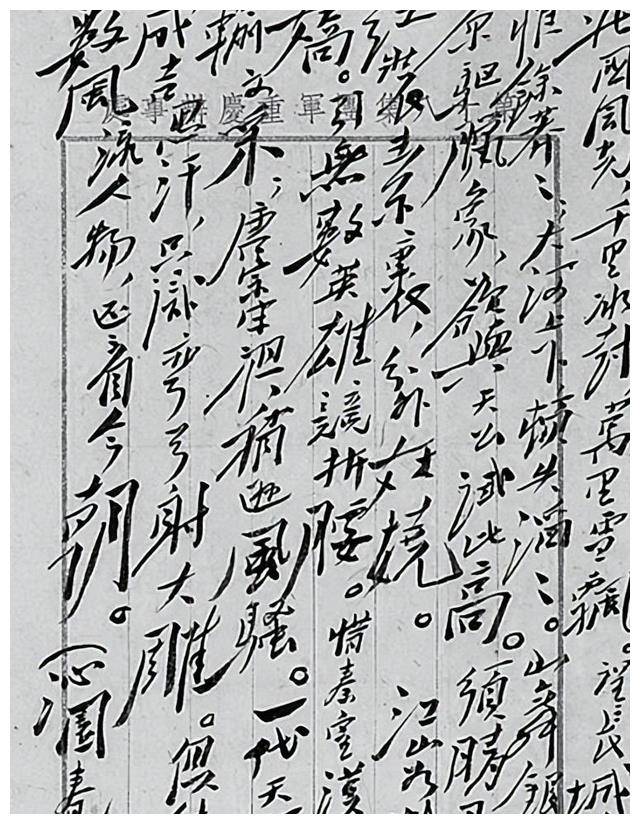 第八集團軍重慶辦事處
北國風光，千里冰封萬里雪飄。望長城
惟餘莽〻，大河上下，頓失滔〻。山舞銀
原駈臘象，欲與天公試比高。須晴
红装素裹，分外妖娆。江山如
嬌。引無數英雄競折腰。惜秦皇漢
輸文采；唐宗宋祖，稍逊風騷。一代天
成吉思汗，只识弯弓射大雕。俱
數風流人物，还看今朝。（沁園春